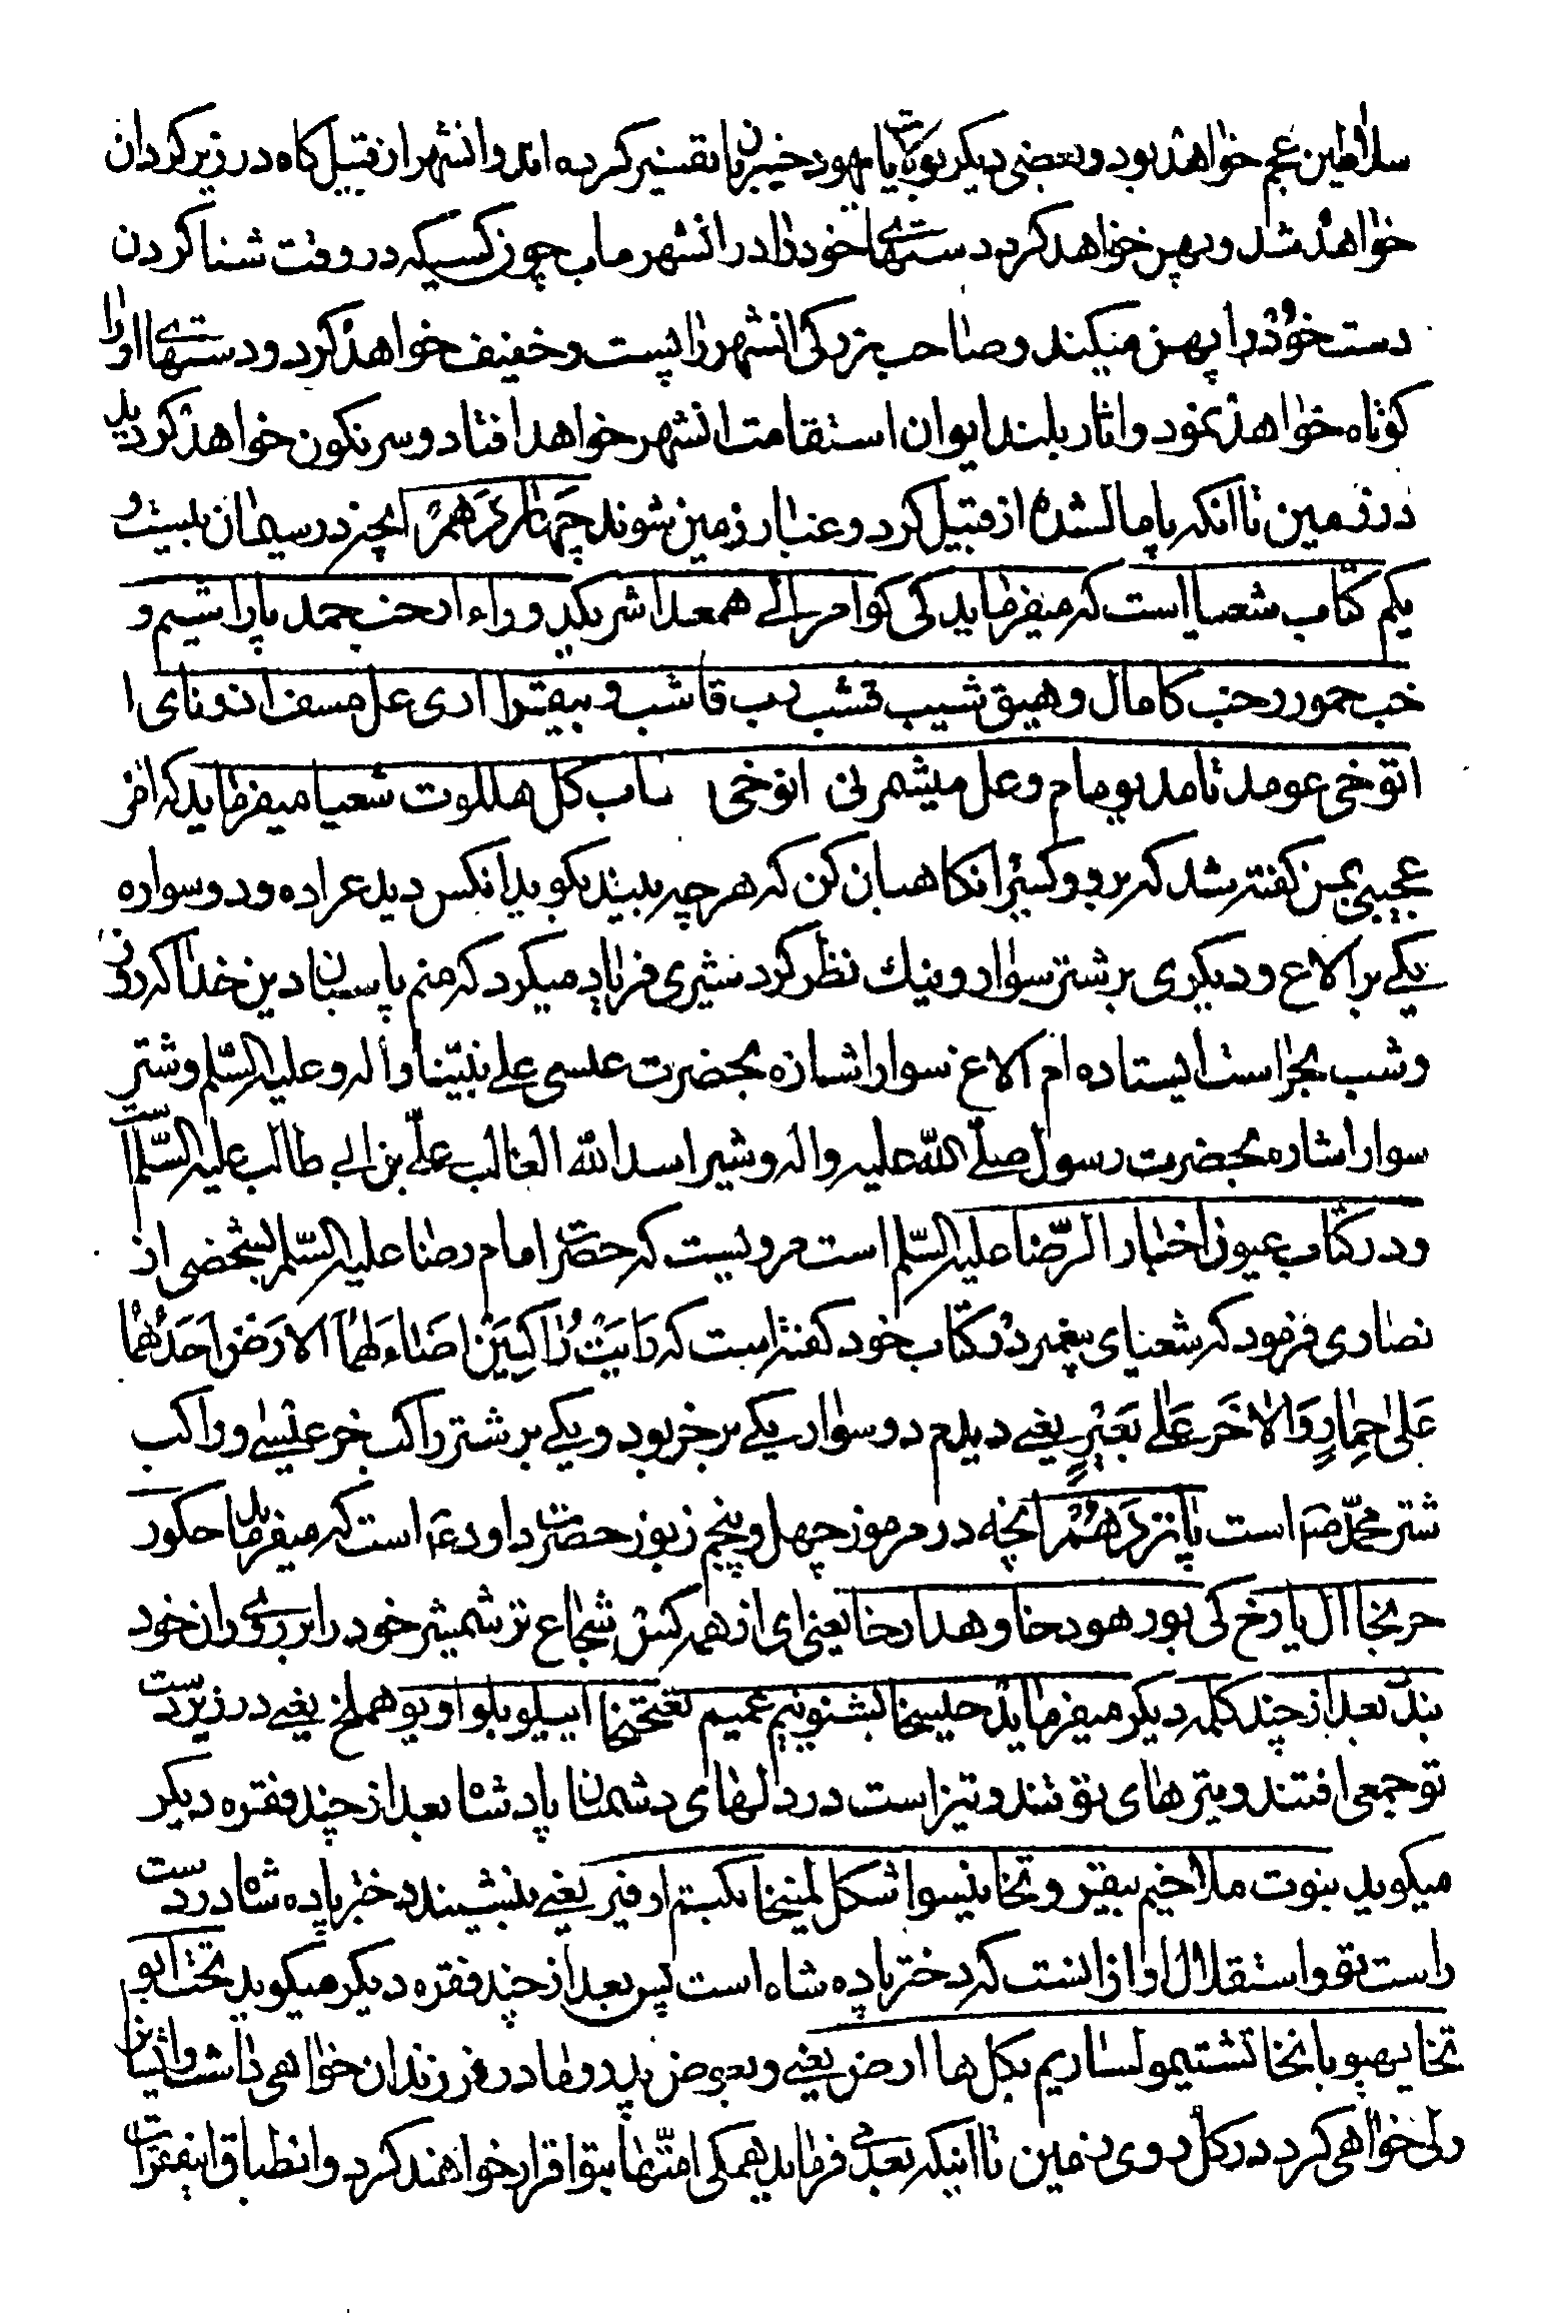 سلاطین عجم خواهد بود و بعضی دیکر بویرانی یا یهود خیبریان تفسیر کرده اند و انشهر از قبیل کاه در زیر کردان
خواهد شد و پهن خواهد کرد دستهای خود را در انشهر ماب چون کسیکه در وقت شنا کردن
دست خود را پهن میکند و صاحب بزرکی انشهر را پست و خفیف خواهد کرد و دستهای او را
کوتاه خواهد نمود و اثار بلند ایوان استقامت انشهر خواهد افتاد و سرنکون خواهد کردید
در زمین تا انکه پامال شده از قبیل کرد و غبار زمین شوند چهاردهم انچه در سیمان بیست و
یکم کتاب شعیا است که میفرماید کی کو امر الے همعد اشر یکید و راء ارخب حمد پاراشیم و
خب حمور رخب کامال و هیق شیب قشب رب قاشب و ییقرا اری عل مسفه ادونای ا
انوخی عومد تامد یومام و عل میشمرتی انوخی ناب کل هللوت شعیا میفرماید که امر
عجیبی بمن کفته شد که برو و کسیرا نکاهبان کن که هر چه ببیند بکوید انکس دید عراده و دو سواره
یکے بر الاغ و دیکری بر شتر سوار و نیك نظر کرد شیری فریاد میکرد که منم پاسبان دین خدا که روز
و شب بحراست ایستاده ام الاغ سوار اشاره بحضرت عیسی علے نبیّنا و اله و علیه السّلم و شتر
سوار اشاره بحضرت رسول صلّے اللّه علیه و اله و شیر اسد اللّه الغالب علیّ بن ابی طالب علیه السّلم است
و در کتاب عیون اخبار الرّضا علیه السّلم است مرویست که حضرت امام رضا علیه السّلم بشخصی از
نصاری فرمود که شعیای پیغمبر در کتاب خود کفته است که رَایَتُ رٰاکِبَیْنِ اَضَاءَ لَهُمَا الاَرْضُ اَحَدُهُمَا
عَلیٰ حِمٰارٍ وَالاٰخَر عَلٰے بَعَیْرٍ یعنے دیدم دو سوار یکے بر خر بود و یکے بر شتر راکب خر عیسی و راکب
شتر محمّد ص است پانزدهم انچه در مرموز چهل و پنجم زبور حضرت داود ع است که میفرماید حکور
حربخا ال یارخ کی بور هودخا و هدارخا یعنی ای از همه کس شجاع تر شمشیر خود را بر روی ران خود
بند بعد از چند کلمه دیکر میفرماید حلیسخا بشنونیم عمیم تختخا ایبلو بلو اویو هملخ یعنے در زیر دست
تو جمعی افتند و تیرهای تو تند و تیز است در دلهای دشمنان پادشاه بعد از چند فقره دیکر
میکوید بنوت ملاخیم بیقر و تخا نیسوا شکل لمینخا بکبتم اوفیر یعنے بنشیند دختر پاده شاه در دست
راست تو و استقلال او از انست که دختر پاده شاه است پس بعد از چند فقره دیکر میکوید تحت ابو
تخا یهیو بانخا تشتیمو لساریم بکل ها ارض یعنے و بعوض پدر و مادر فرزندان خواهی داشت و ایشان
ولی خواهی کرد در کل روی زمین تا اینکه بعد میفرماید همکی امّتها بتو اقرار خواهند کرد و انطباق اینفقرات